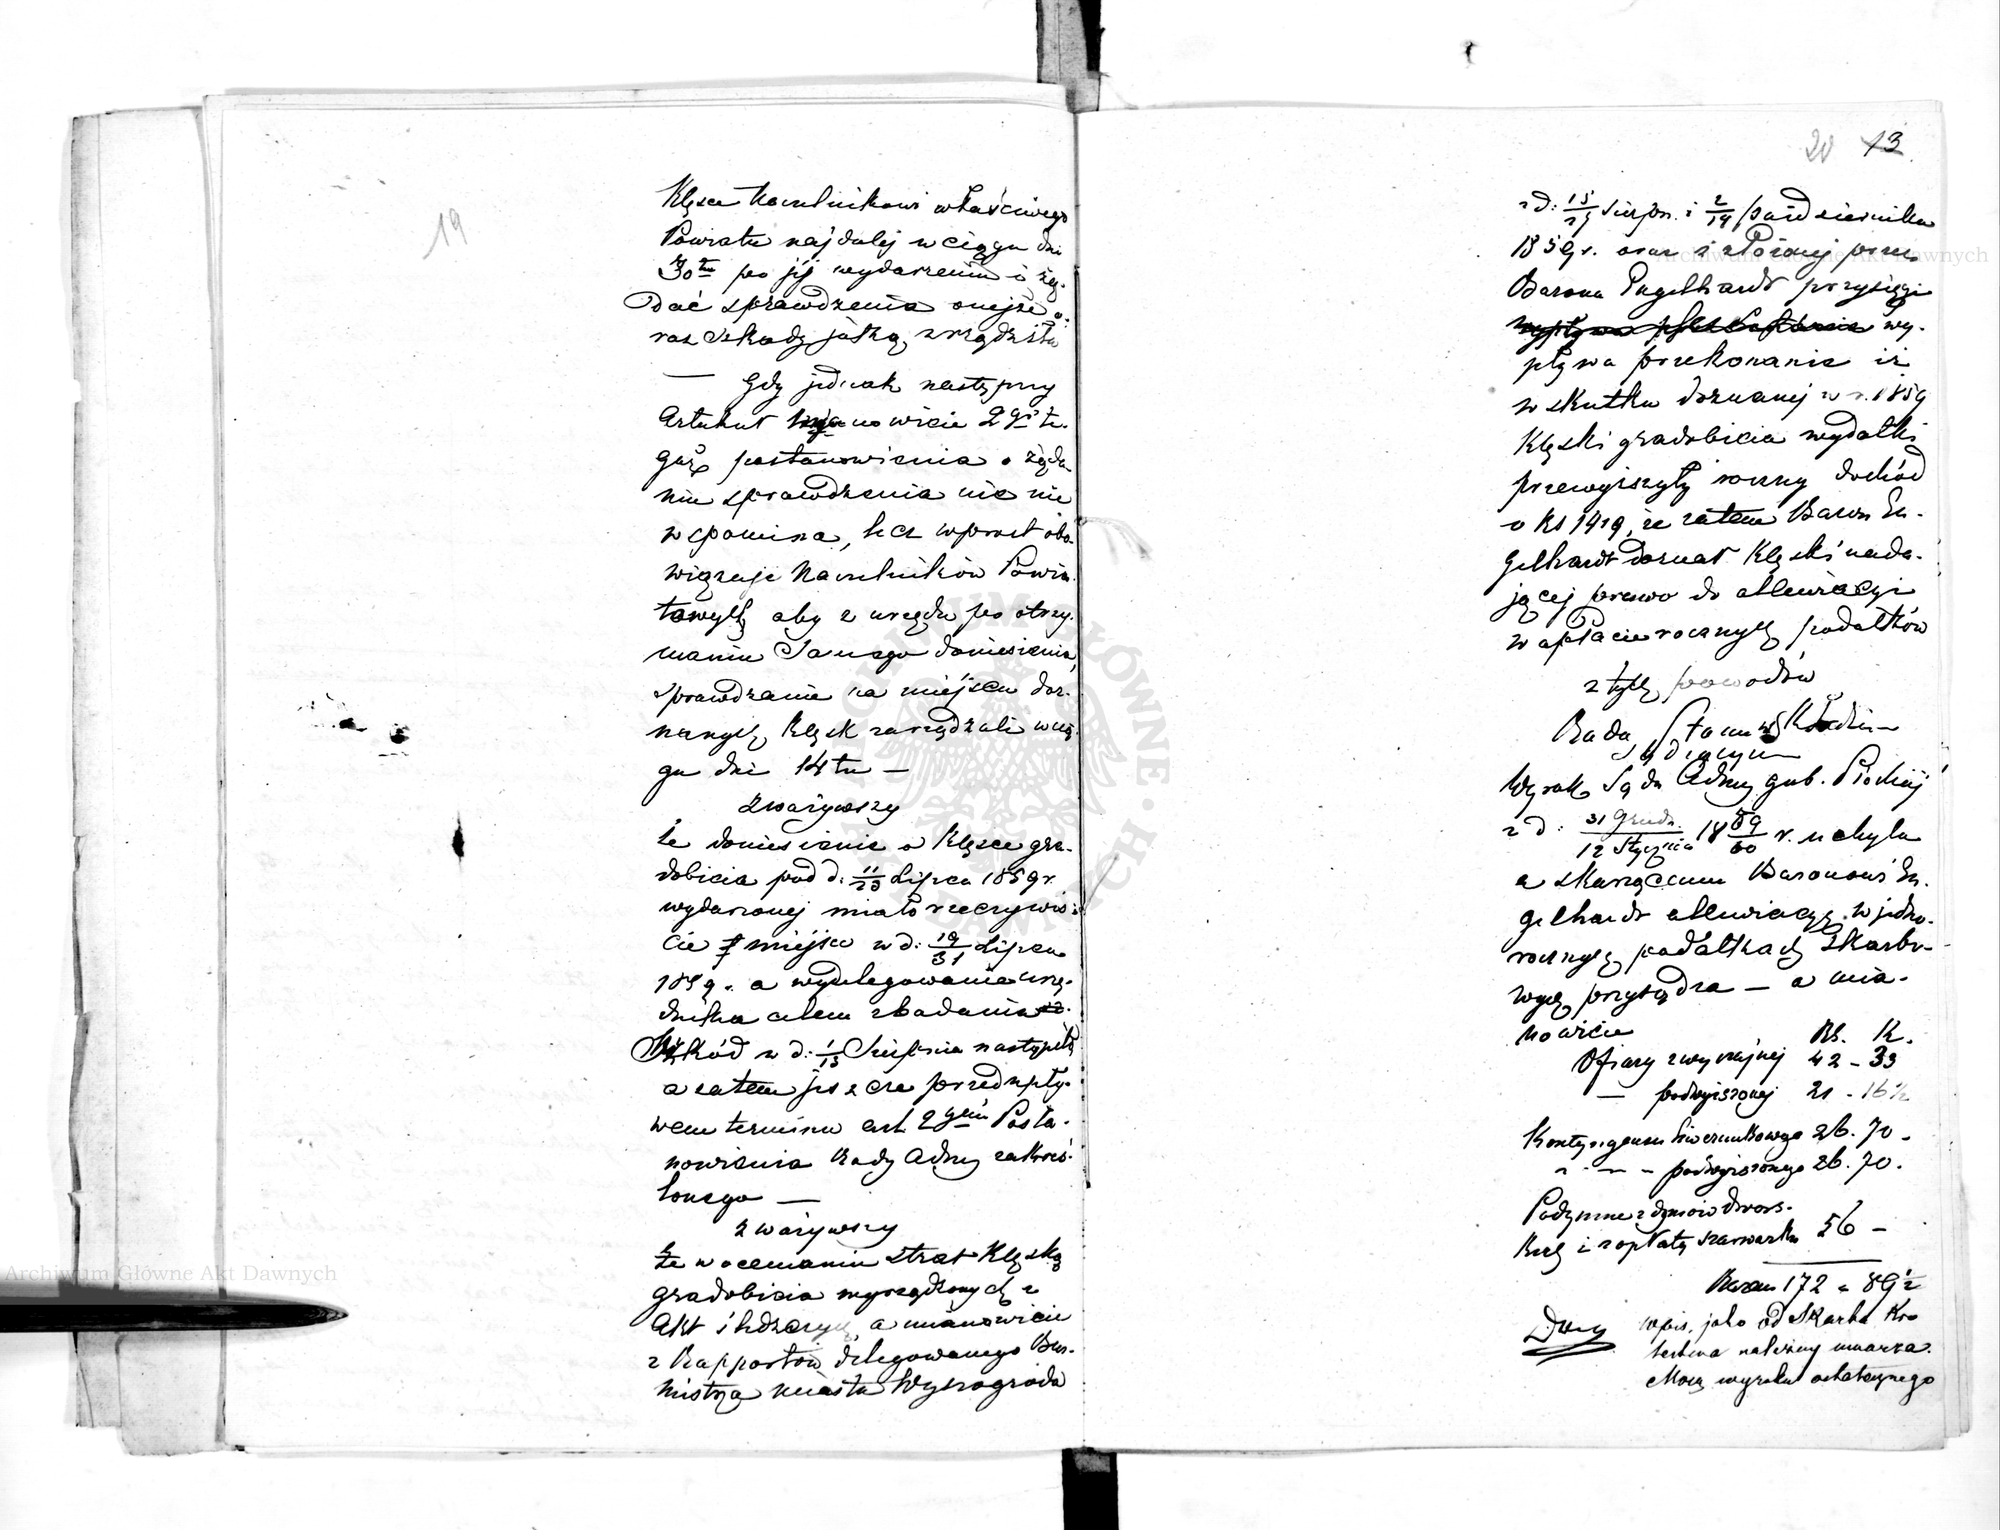 19
Klęsce Naczelnikowi właściwego
Powiatu najdalej w ciągu dni
30tu po jej wydarzeniu i żą-
dać sprawdzenia onejże o-
raz szkody jaką zrządziła
— Gdy jednak następny
Artukuł mianowicie 2gi te-
goż postanowienia o żąda-
niu sprawdzenia nic nie
wspomina, lecz wprost obo-
wiązuje Naczelników Powia-
towych aby z urzędu po otrzy-
maniu danego doniesienia,
sprawdzanie na miejscu doz-
nanych klęsk zarządzali w cią-
gu dni 14tu —
Zważywszy
że doniesienie o klęsce gra-
dobicia pod d. 11/23 Lipca 1859 r.
wydarzonej miało rzeczywiś-
cie miejsce w d: 19/31 Lipca
1859 r. a wydelegowanie urzę-
dnika celem zbadania
Szkód w d: 1/13 Sierpnia nastąpiło
a zatem jeszcze przed upły-
wem terminu art. 2gim Posta-
nowienia Rady Admej zakreś-
lonego —
Zważywszy
że w ocenianiu strat klęską
gradobicia wyrządzonych z
Akt i śledczych, a mianowicie
z Rapportów delegowanego Bur-
mistrza miasta Wyszogroda
20 13
z d: 13/25 Sierpn. i 2/14 października
1859 r. oraz z złożonej przez
Barona Engelhardt przysięgi
wy-
pływa przekonanie iż
w skutku doznanej w r. 1859
klęski gradobicia wydatki
przewyższyły roczny dochód
o Rs 1419, że zatem Baron En-
gelhardt doznał klęski nada-
jącej prawo do allewiacyi
w opłacie rocznych podatków
z tych powodów
Rada Stanu w Składzie
Sądzącym
Wyrok Sądu Admej gub. Płockiej
z d: 31 Grudn./12 Stycznia 1859/60 r. uchyla
a skarżącemu Baronowi En-
gelhardt allewiacyę w jedno-
rocznych podatkach Skarbo-
wych przysądza — a mia-
nowicie Rs. K.
Ofiary zwyczajnej 42 - 33
— podwyższonej 21 - 16½
Kontyngensu liwerunkowego 26. 70 -
" — " — podwyższonego 26. 70.
Podymne z dymów dwors-
kich i zopłaty szarwarku 56 -
Razem 172 " 89½
wpis, jako od Skarbu Kró-
lestwa należny umarza.
Mocą wyroku ostatecznego
Archiwum Główne Akt Dawnych
Archiwum Główne Akt Dawnych